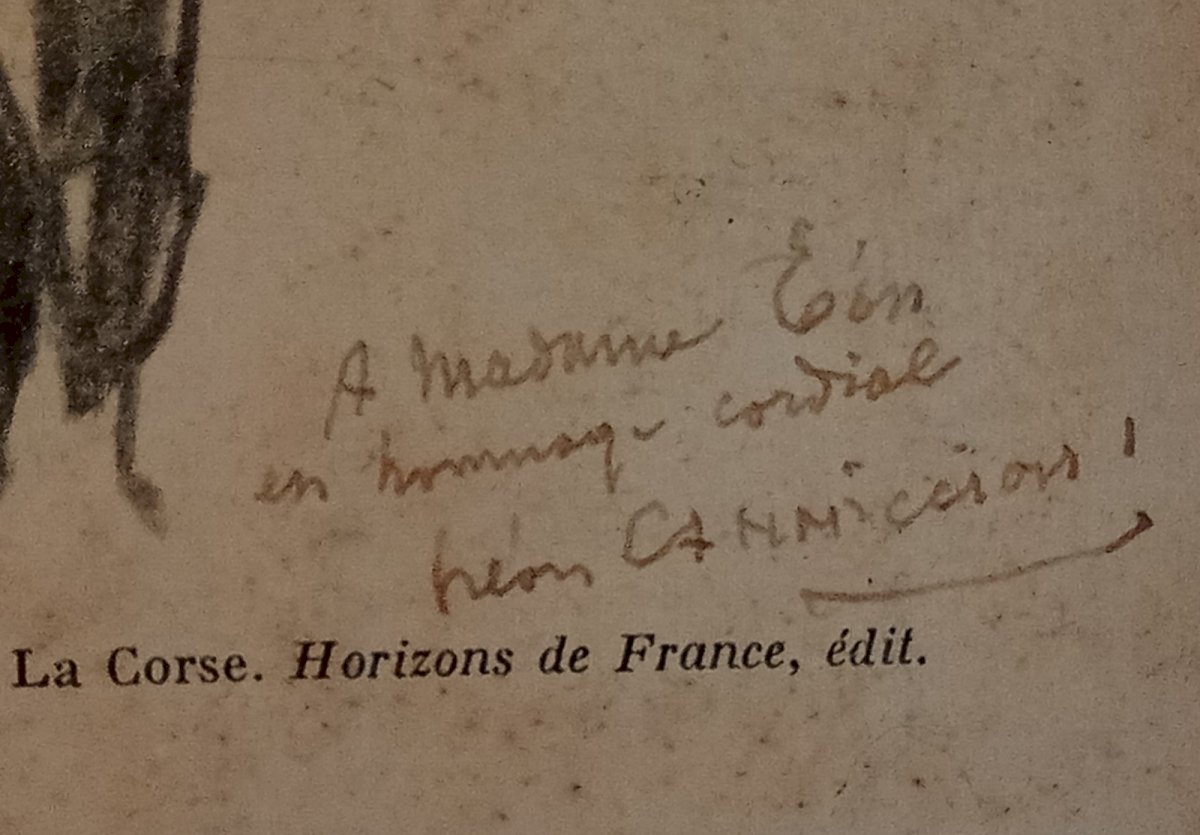 A Madame
en hommage cordial
Léon CANNICCIONI
La Corse. Horizons de France, édit.